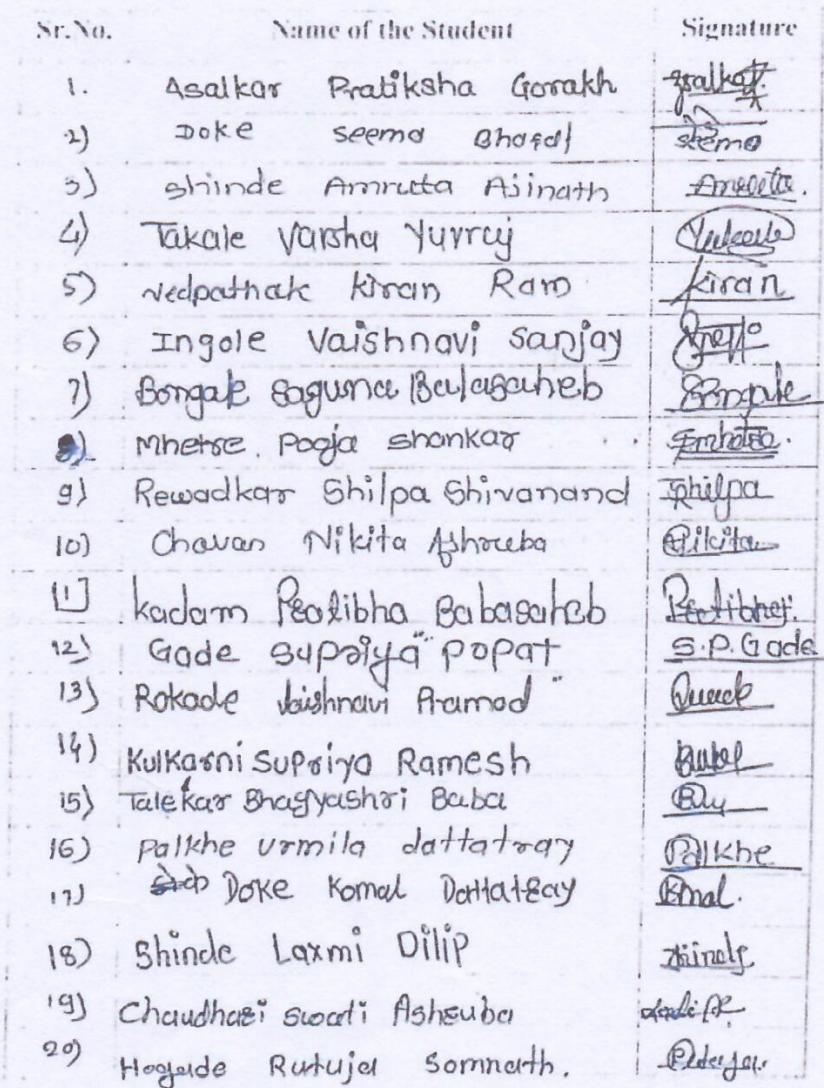 Sr.No. Name of the Student Signature
1. Asalkar Pratiksha Gorakh
2) Doke Seema Seema
3) Shinde Amruta Ajinath Amruta.
4) Takale Varsha Yuvraj
5) Vedpathak Kiran Ram Kiran
6) Ingole Vaishnavi Sanjay
7) Bongale Saguna Balasaheb Bongale
8) Mhetre. Pooja Shankar
9) Rewadkar Shilpa Shivanand Shilpa
10) Chavan Nikita Ashruba Nikita
11] Kadam Pratibha Babasaheb
12) Gade Supriya Popat S.P. Gade
13) Rokade Vaishnavi Pramod
14) Kulkarni Supriya Ramesh
15) Talekar Bhagyashri Baba
16) Palkhe Urmila dattatray Palkhe
17) Doke Komal Dattatray
18) Shinde Laxmi Dilip Shinde
19) Chaudhari Swati Ashruba
20) Hogade Rutuja Somnath.